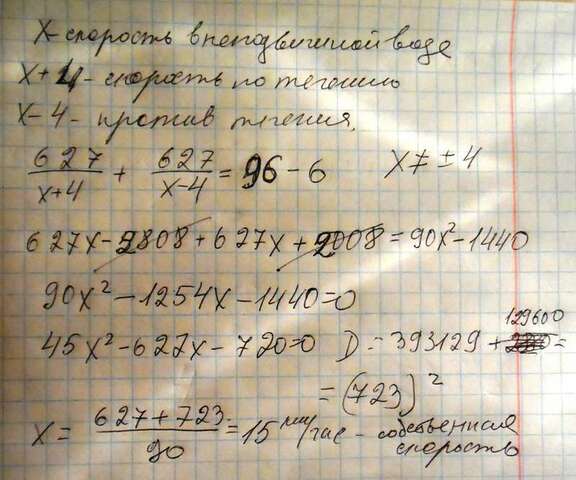 X - скорость в неподвижной воде
X+4 - скорость по течению
X-4 - против течения.
627/(x+4) + 627/(x-4) = 96-6 X≠±4
627X-2808+627X+2008=90X²-1440
90X²-1254X-1440=0
45X²-627X-720=0 D=393129+129600=
=(723)²
X=(627+723)/90=15 км/час - собственная скорость